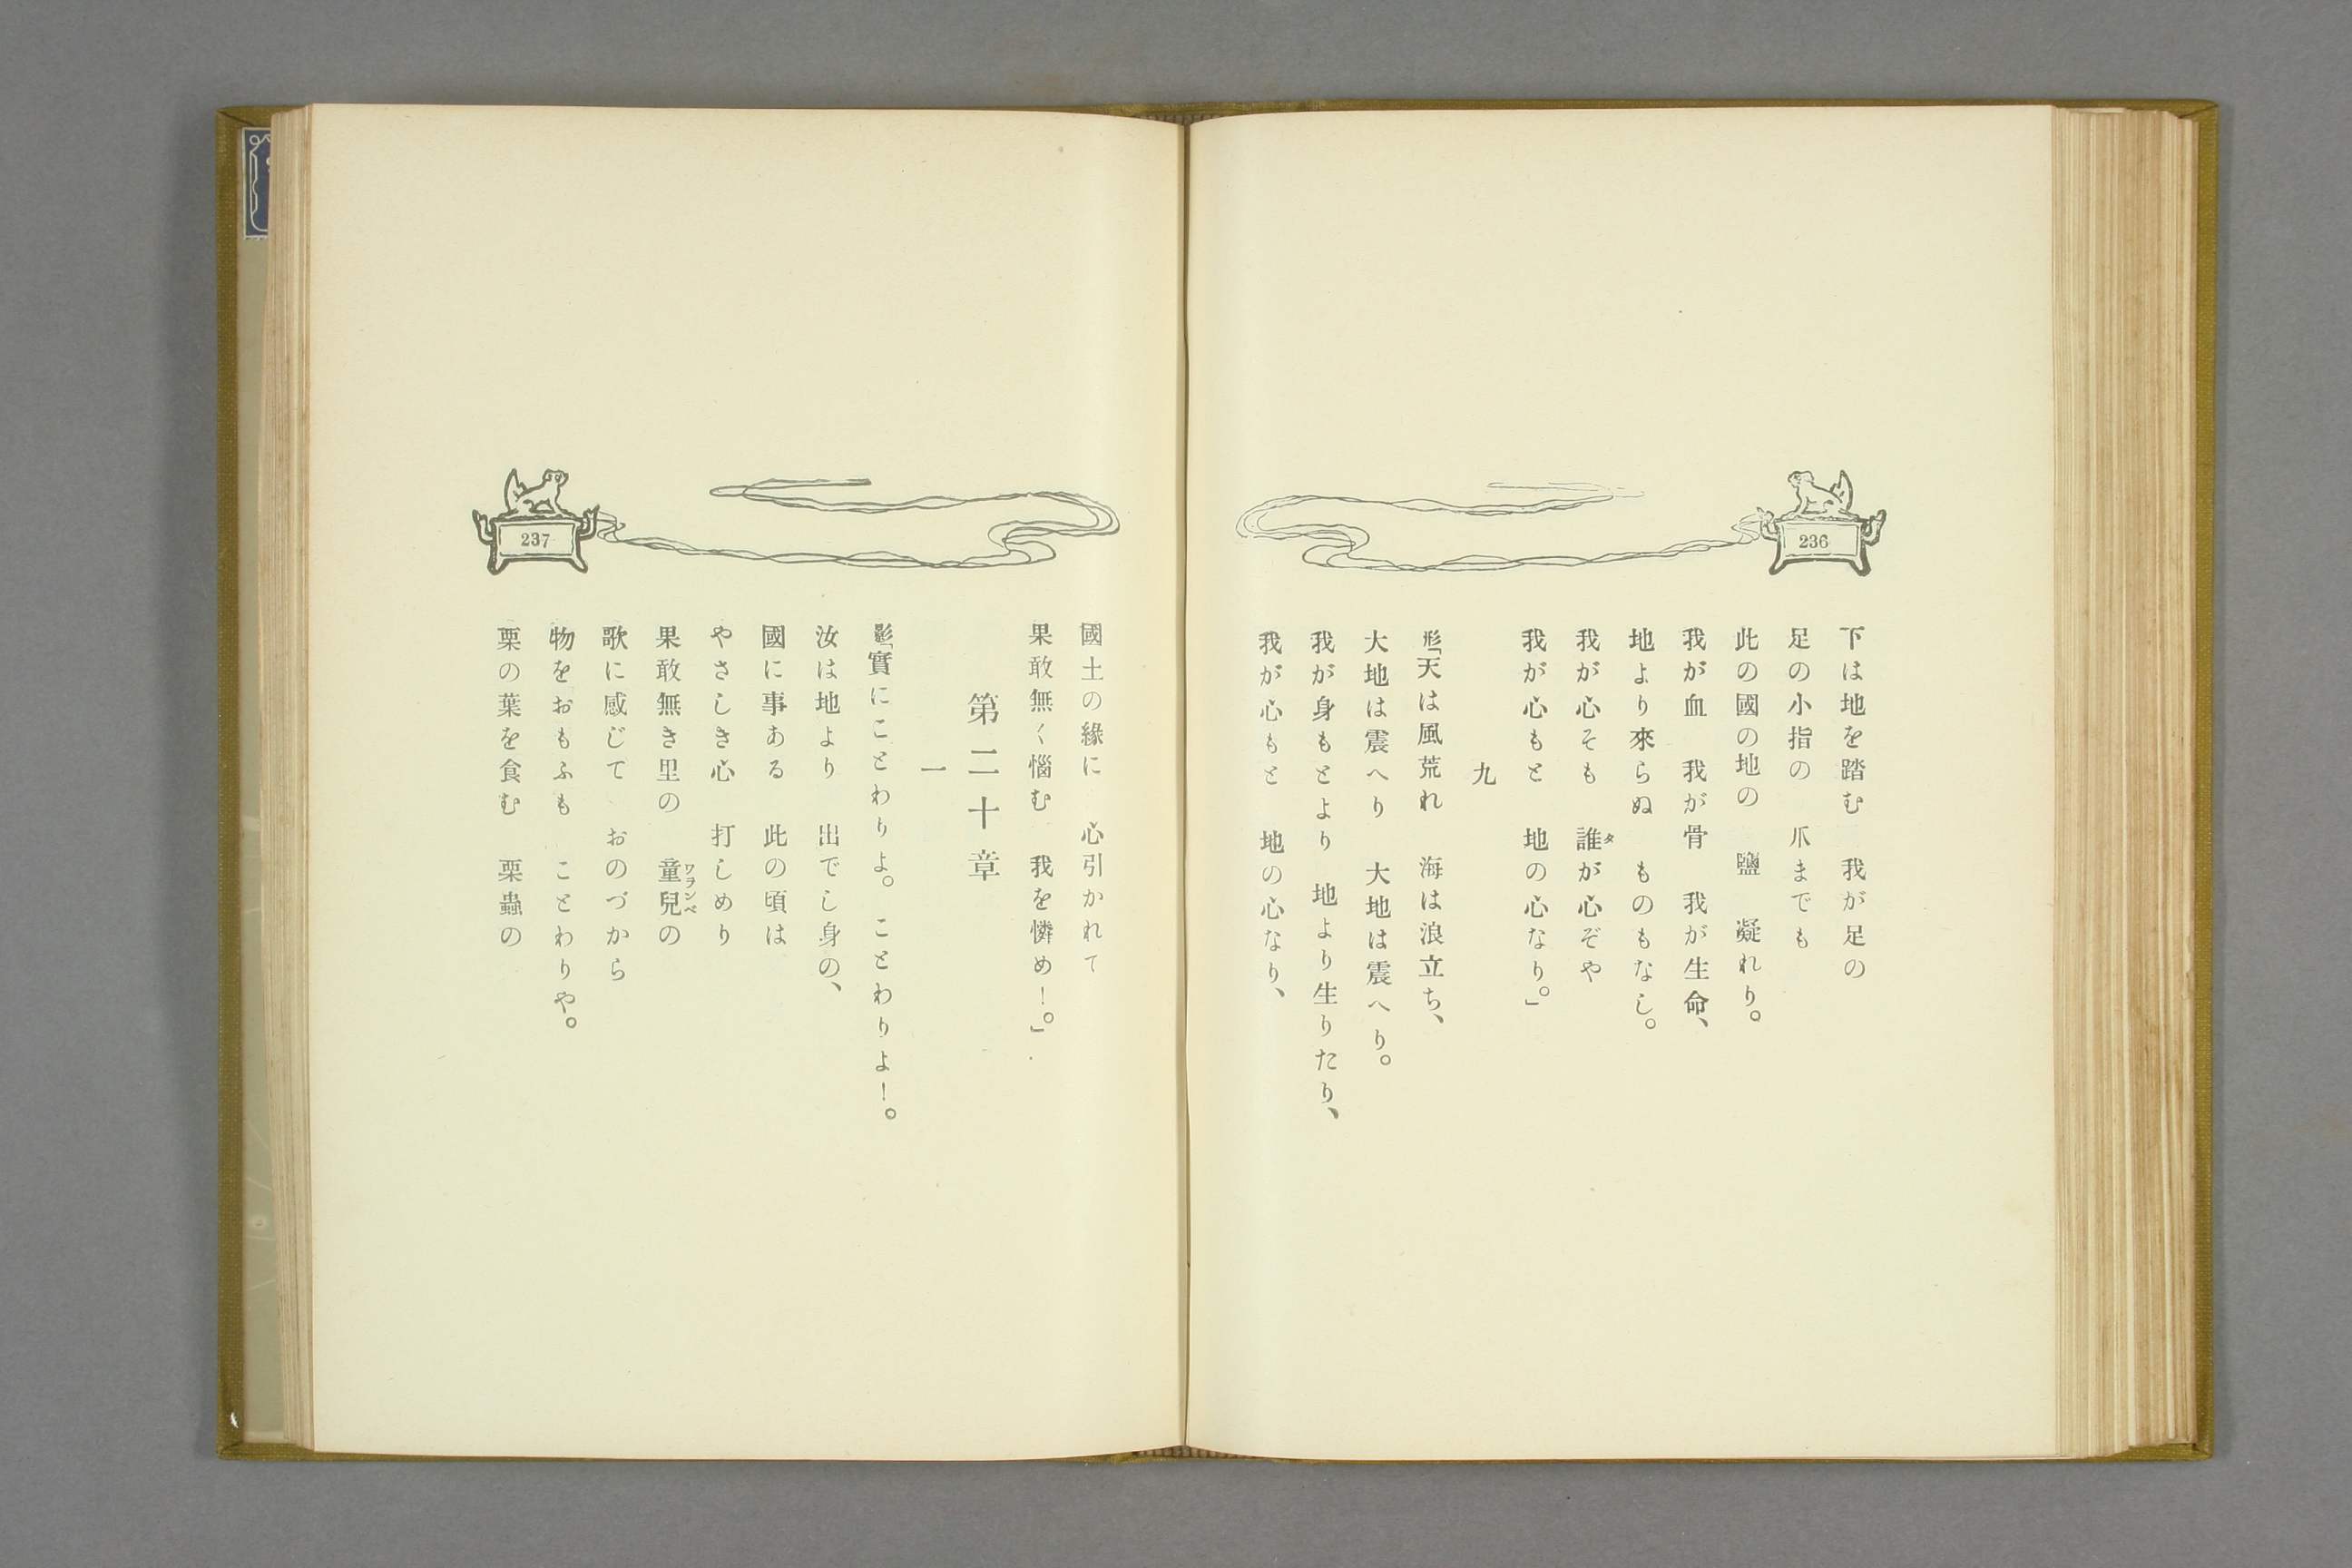 236
下は地を踏む　我が足の
足の小指の　爪までも
此の國の地の　鹽　凝れり。
我が血　我が骨　我が生命、
地より來らぬ　ものもなし。
我が心そも　誰が心ぞや
タ
我が心もと　地の心なり。」
九
形「天は風荒れ　海は浪立ち、
大地は震へり　大地は震へり。
我が身もとより　地より生りたり、
我が心もと　地の心なり、
237
國土の緣に　心引かれて
果敢無く惱む　我を憐め！。」
第二十章
一
影「實にことわりよ。ことわりよ！。
汝は地より　出でし身の、
國に事ある　此の頃は
やさしき心　打しめり
果敢無き里の　童兒の
ワランベ
歌に感じて　おのづから
物をおもふも　ことわりや。
栗の葉を食む　栗蟲の